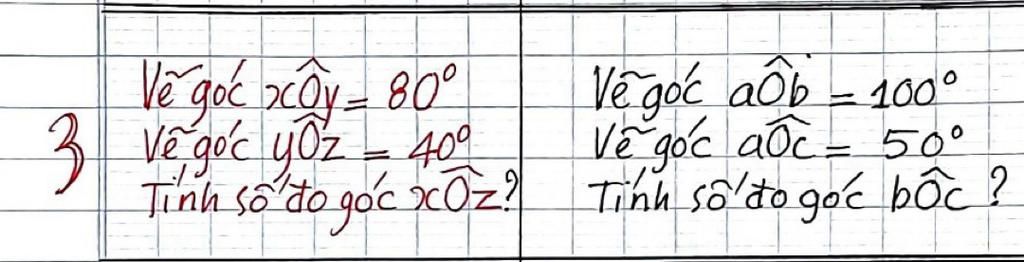 3
Vẽ góc xÔy = 80°
Vẽ góc yÔz = 40°
Tính số đo góc xÔz?
Vẽ góc aÔb = 100°
Vẽ góc aÔc = 50°
Tính số đo góc bÔc?